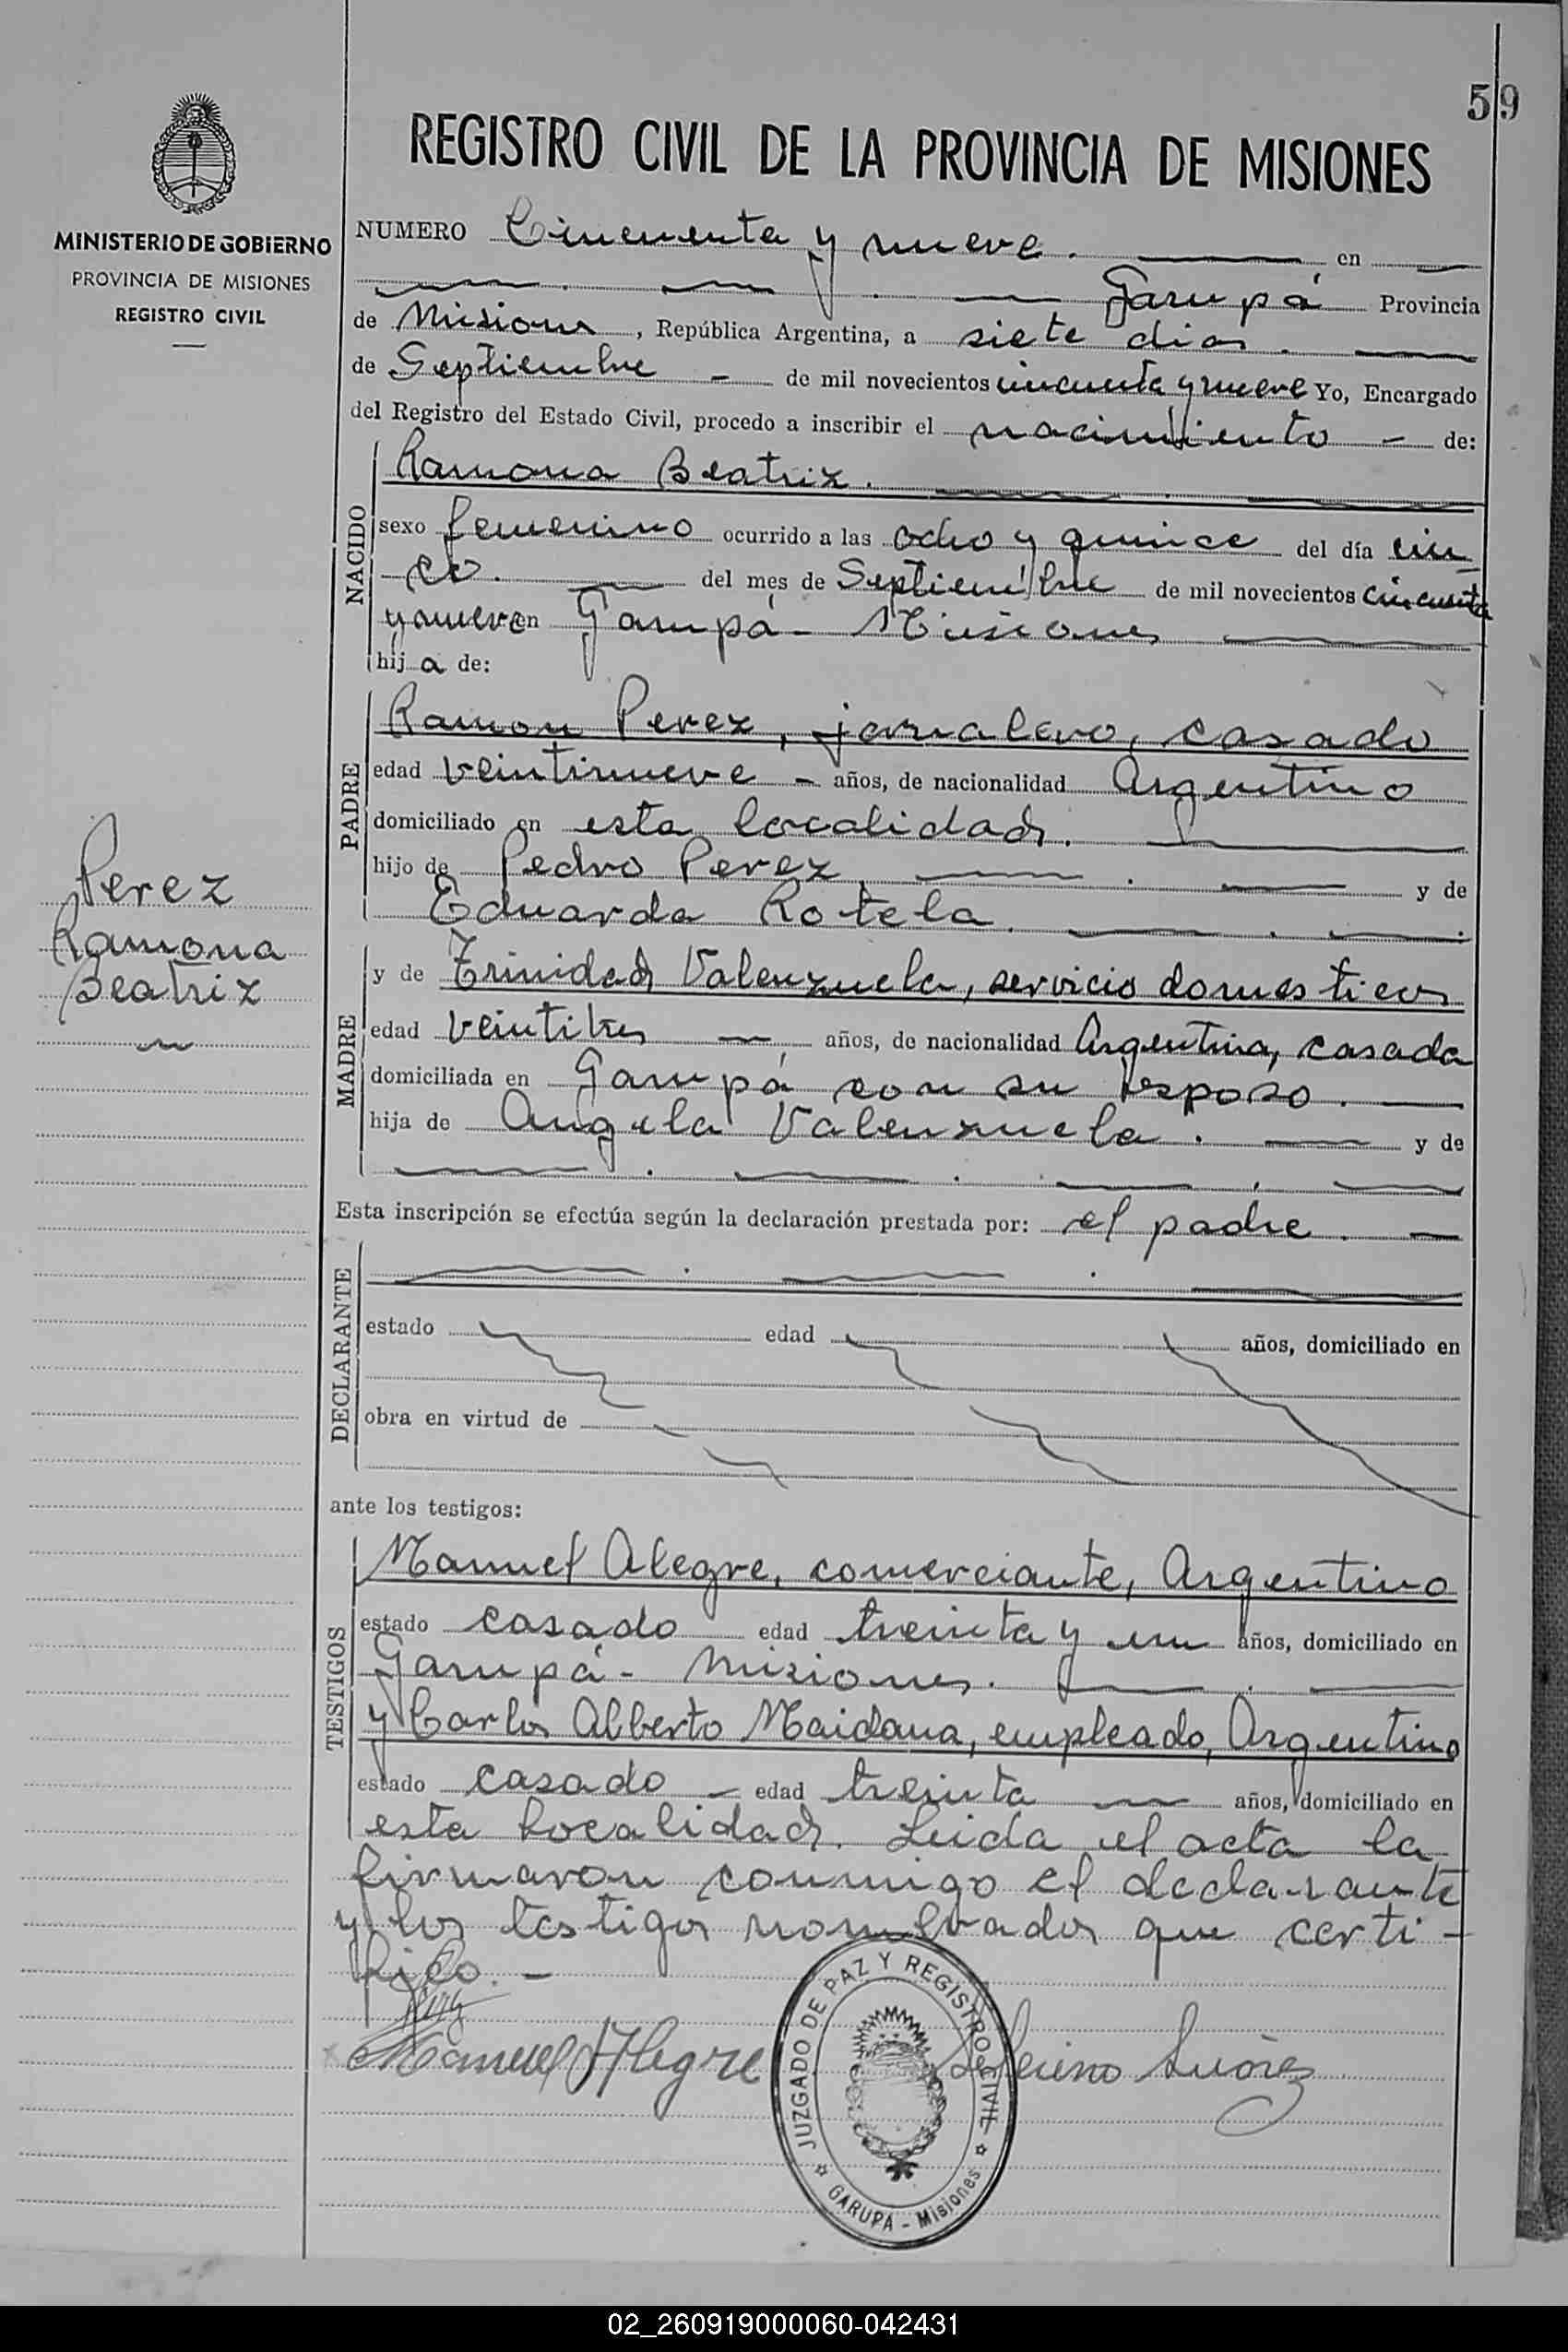 59
REGISTRO CIVIL DE LA PROVINCIA DE MISIONES
MINISTERIO DE GOBIERNO
PROVINCIA DE MISIONES
REGISTRO CIVIL
Perez
Ramona
Beatriz
NUMERO Cincuenta y nueve. en
Garupá Provincia
de Misiones, República Argentina, a siete dias.
de Septiembre - de mil novecientos cincuenta y nueve Yo, Encargado
del Registro del Estado Civil, procedo a inscribir el nacimiento - de:
NACIDO
Ramona Beatriz.
sexo femenino ocurrido a las ocho y quince del día cin-
co. del mes de Septiembre de mil novecientos cincuenta
y nueve en Garupá - Misiones
hija de:
PADRE
Ramon Perez, jornalero, casado
edad veintinueve - años, de nacionalidad Argentino
domiciliado en esta localidad.
hijo de Pedro Perez. y de
Eduarda Rotela.
MADRE
y de Trinidad Valenzuela, servicio domesticos
edad veintitres años, de nacionalidad Argentina, casada
domiciliada en Garupá con su esposo.
hija de Angela Valenzuela. y de
Esta inscripción se efectúa según la declaración prestada por: el padre.
DECLARANTE
estado edad años, domiciliado en
obra en virtud de
ante los testigos:
TESTIGOS
Manuel Alegre, comerciante, Argentino
estado casado edad treinta y un años, domiciliado en
Garupá - Misiones.
y Carlos Alberto Maidana, empleado, Argentino
estado casado - edad treinta años, domiciliado en
esta localidad. Leida el acta la
firmaron conmigo el declarante
y los testigos nombrados que certi-
fico. -
Manuel Alegre
Suárez
JUZGADO DE PAZ Y REGISTRO CIVIL
GARUPA - Misiones
02_260919000060-042431